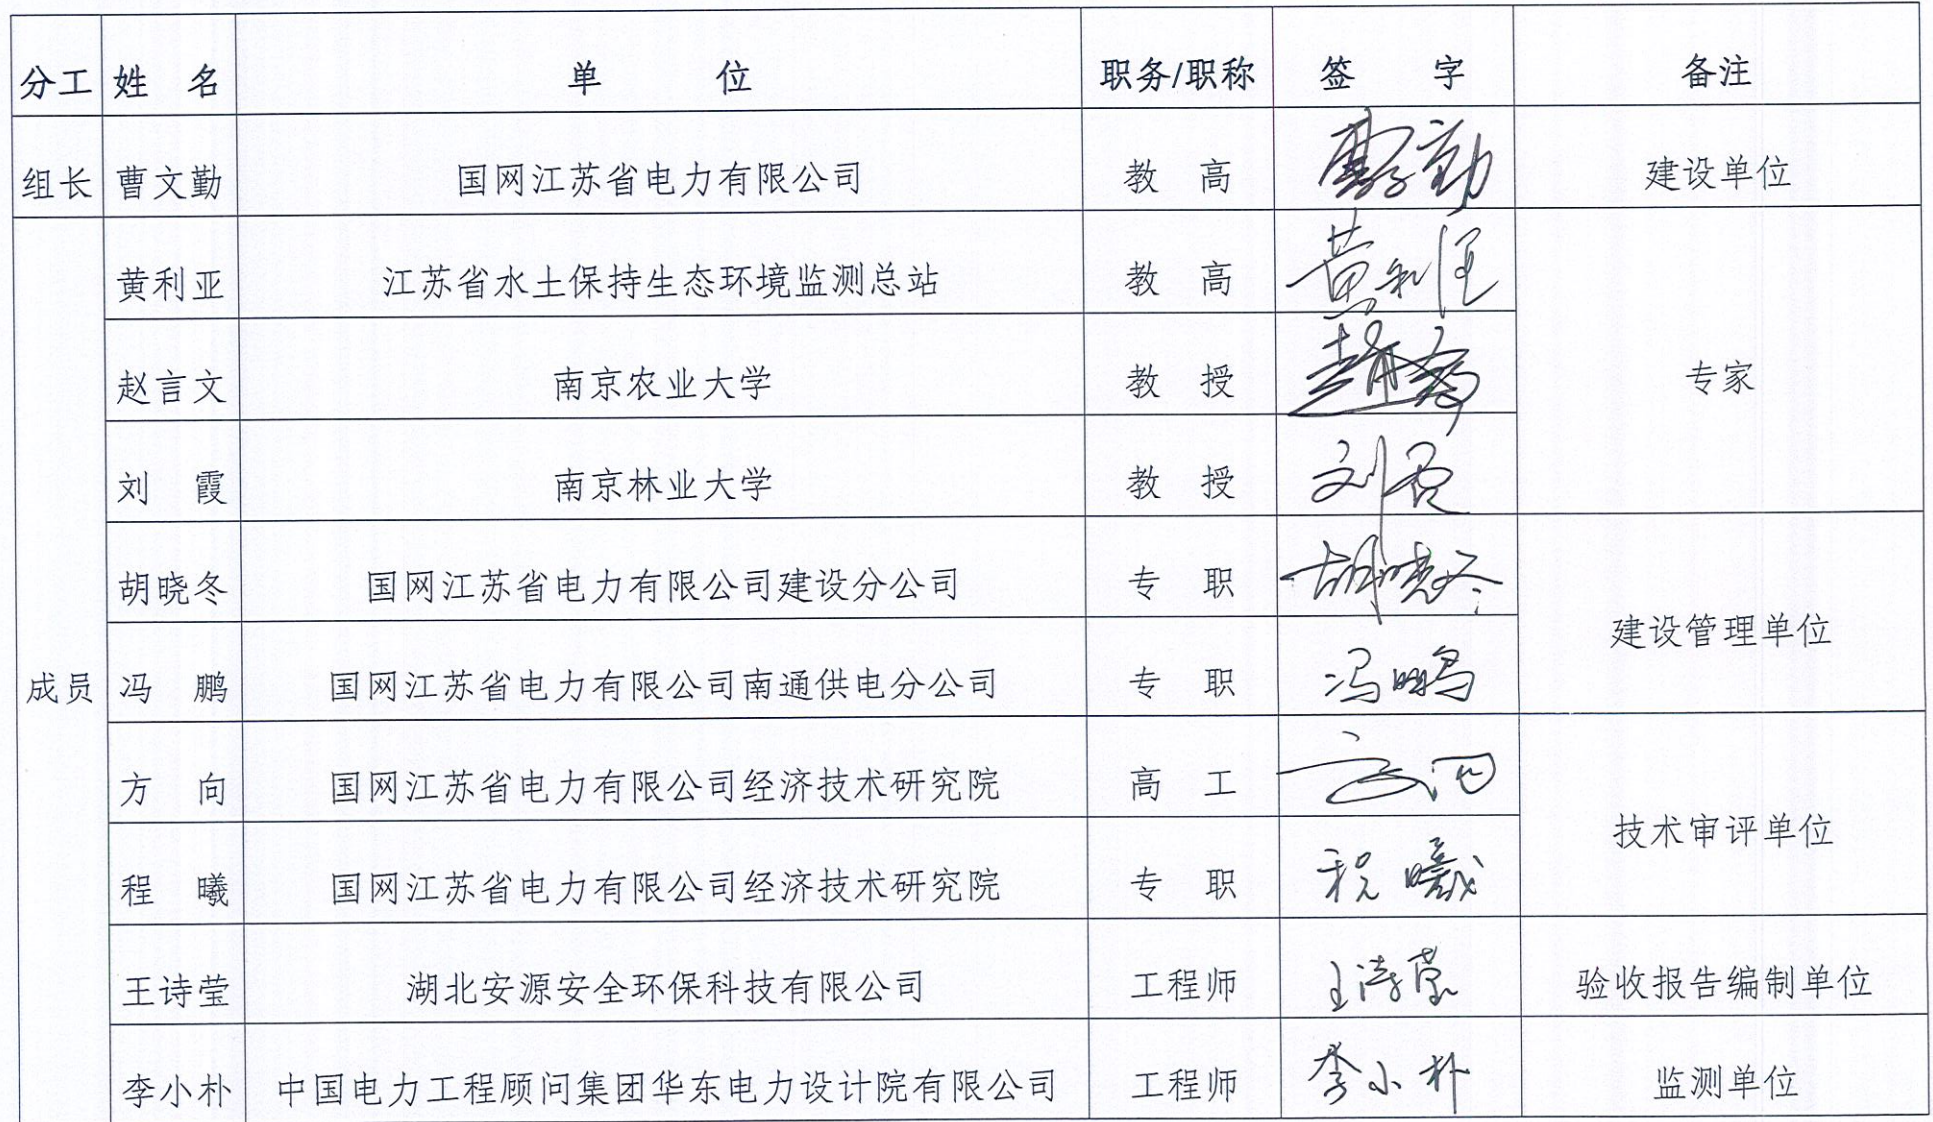 分工 姓 名 单 位 职务/职称 签 字 备注
组长 曹文勤 国网江苏省电力有限公司 教 高 曹文勤 建设单位
黄利亚 江苏省水土保持生态环境监测总站 教 高 黄利亚
赵言文 南京农业大学 教 授 赵言文 专家
刘 霞 南京林业大学 教 授 刘霞
胡晓冬 国网江苏省电力有限公司建设分公司 专 职 胡晓冬
建设管理单位
成员 冯 鹏 国网江苏省电力有限公司南通供电分公司 专 职 冯鹏
方 向 国网江苏省电力有限公司经济技术研究院 高 工 方向
技术审评单位
程 曦 国网江苏省电力有限公司经济技术研究院 专 职 程曦
王诗莹 湖北安源安全环保科技有限公司 工程师 王诗莹 验收报告编制单位
李小朴 中国电力工程顾问集团华东电力设计院有限公司 工程师 李小朴 监测单位